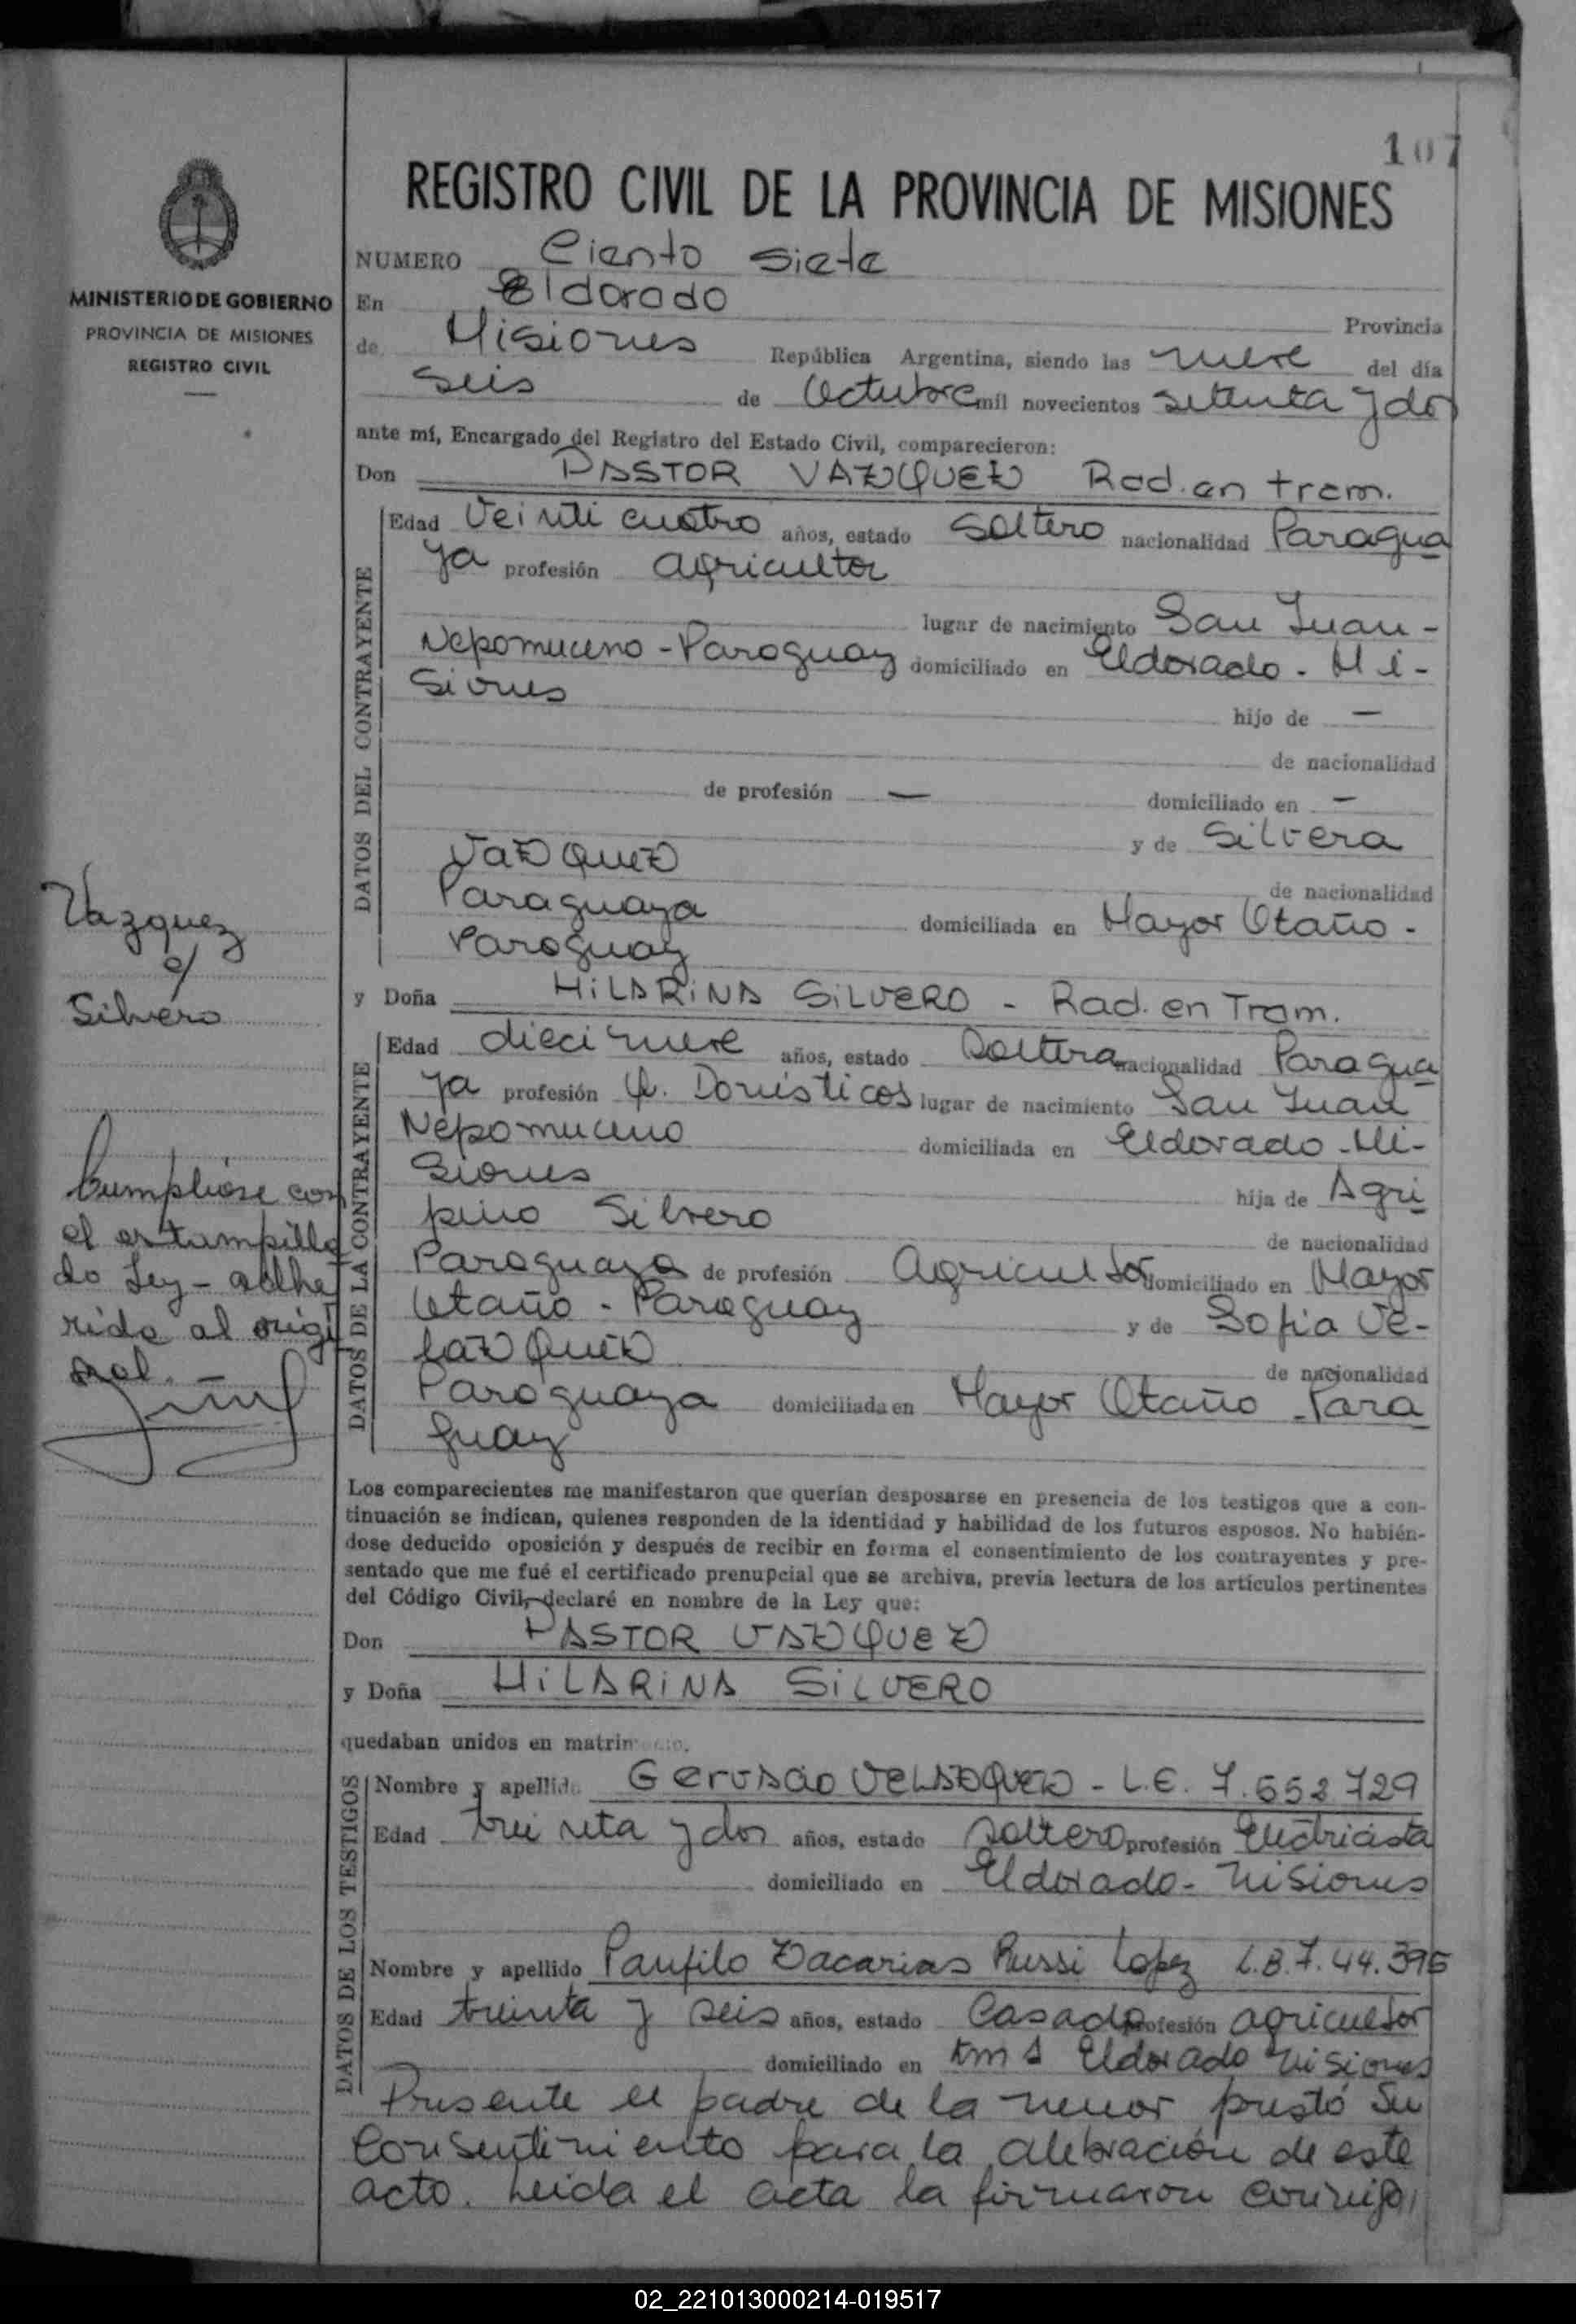 107
REGISTRO CIVIL DE LA PROVINCIA DE MISIONES
MINISTERIO DE GOBIERNO
PROVINCIA DE MISIONES
REGISTRO CIVIL
NUMERO Ciento Siete
En Eldorado Provincia
de Misiones República Argentina, siendo las nueve del día
Seis de Octubre mil novecientos setenta y dos
ante mí, Encargado del Registro del Estado Civil, comparecieron:
Don PASTOR VAZQUEZ Rad. en tram.
DATOS DEL CONTRAYENTE
Edad Veinti cuatro años, estado Soltero nacionalidad Paragua
ya profesión agricultor
lugar de nacimiento San Juan -
Nepomuceno - Paraguay domiciliado en Eldorado - Mi-
siones
hijo de —
de nacionalidad
de profesión — domiciliado en —
y de Silvera
Vazquez
de nacionalidad
Paraguaya domiciliada en Mayor Otaño -
Paraguay
y Doña HILARINA SILVERO - Rad. en Tram.
DATOS DE LA CONTRAYENTE
Edad diecinueve años, estado Soltera nacionalidad Paragua
ya profesión Q. Domésticos lugar de nacimiento San Juan
Nepomuceno domiciliada en Eldorado - Mi-
siones
hija de Agri
pino Silvero
de nacionalidad
Paraguaya de profesión Agricultor domiciliado en Mayor
Otaño - Paraguay y de Sofia Ve-
lazquez
de nacionalidad
Paraguaya domiciliada en Mayor Otaño - Para
guay
Los comparecientes me manifestaron que querían desposarse en presencia de los testigos que a con-
tinuación se indican, quienes responden de la identidad y habilidad de los futuros esposos. No habién-
dose deducido oposición y después de recibir en forma el consentimiento de los contrayentes y pre-
sentado que me fué el certificado prenupcial que se archiva, previa lectura de los artículos pertinentes
del Código Civil, declaré en nombre de la Ley que:
Don PASTOR VAZQUEZ
y Doña HILARINA SILVERO
quedaban unidos en matrimonio.
DATOS DE LOS TESTIGOS
Nombre y apellido Gervacio VELAZQUEZ - L.E. 7.552.729
Edad treinta y dos años, estado soltero profesión Electricista
domiciliado en Eldorado - Misiones
Nombre y apellido Panfilo Zacarias Russi Lopez 7.44.395
Edad treinta y seis años, estado Casado profesión agricultor
domiciliado en Km Eldorado Misiones
Presente el padre de la menor prestó su
consentimiento para la celebración de este
acto. Leida el acta la firmaron conmigo,
Vazquez
c/
Silvero
Cumplióse con
el estampilla
do Ley - adhe
rido al origi
nal. -
02_221013000214-019517